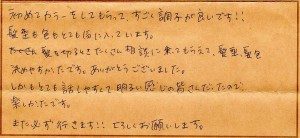 初めてカラーをしてもらって、すごく調子が良いです!!
髪型も色もとても気に入っています。
髪を切るときたくさん相談に来てもらえて、髪型、髪色
決めやすかったです。ありがとうございました。
しかもとても話しやすくて明るい感じの皆さんだったので
楽しかったです。
また必ず行きます!! よろしくお願いします。